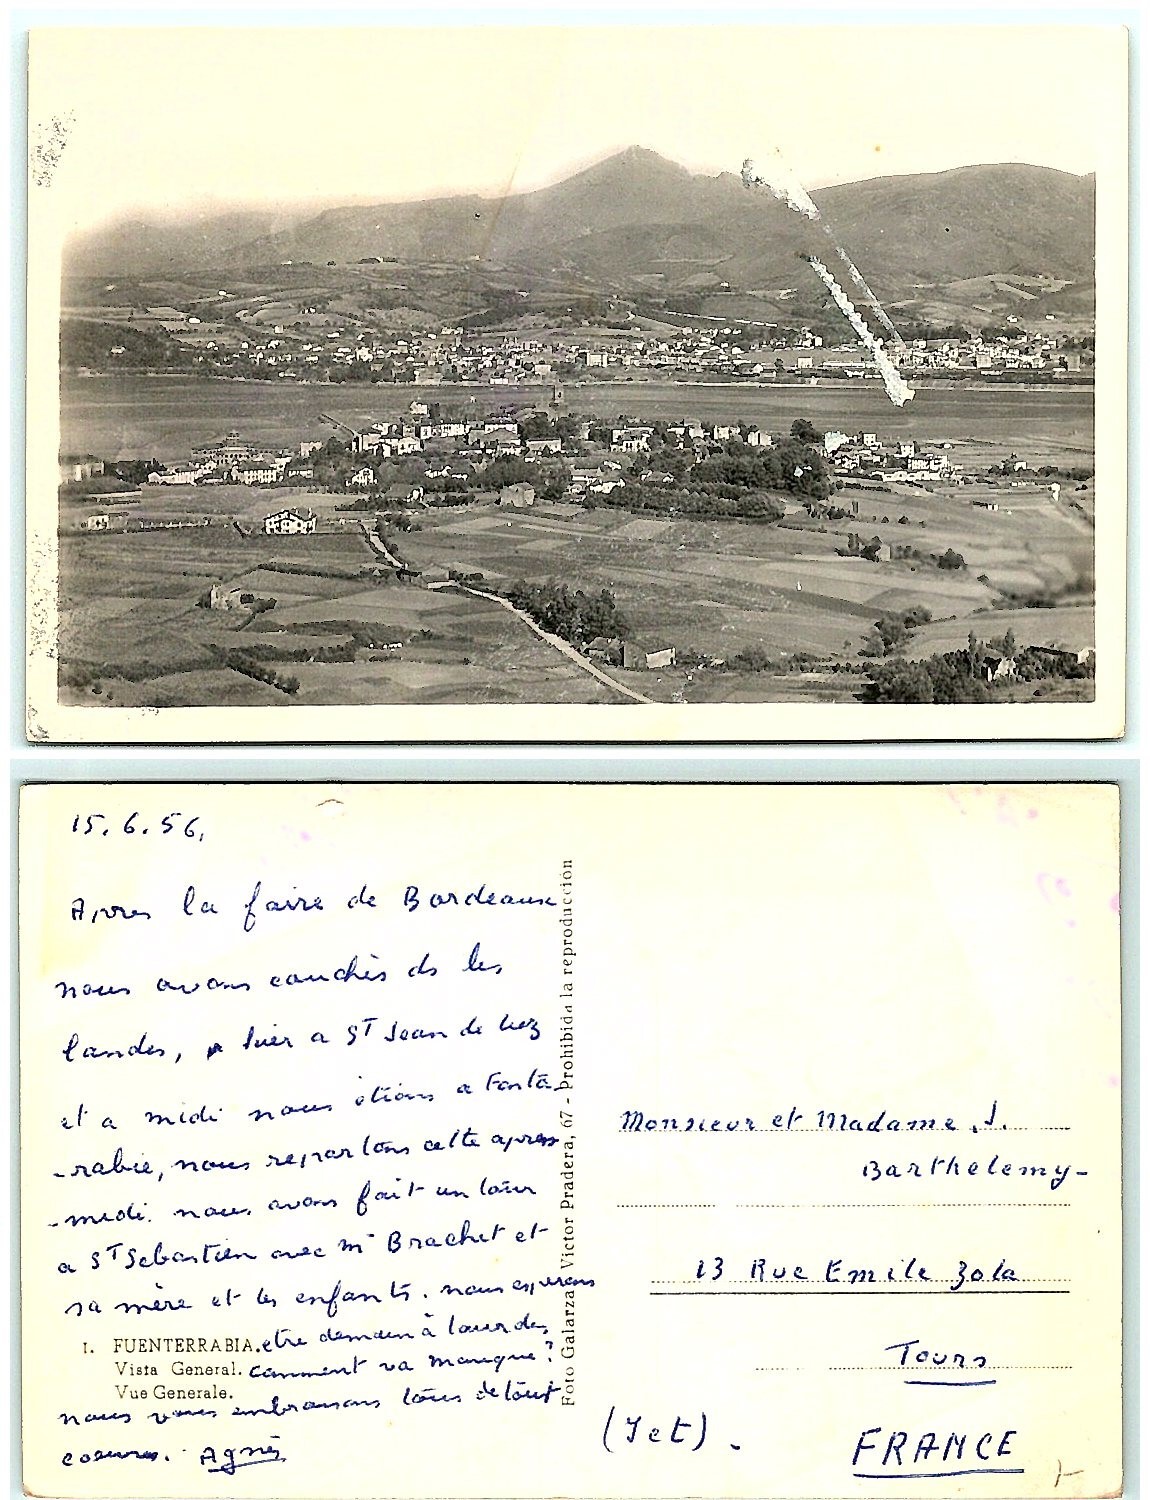 15.6.56.
Apres la foire de Bordeaux
nous avons couchès ds les
landes, hier a St Jean de Luz
et a midi nous étions a Fonta
-rabie, nous repartons cette apres
-midi. nous avons fait un tour
a St Sebastien avec mr Brachet et
sa mère et les enfants. nous esperons
etre demain à Lourdes,
comment va manique?
nous vous embrassons tous de tout
coeurs. Agnès
1. FUENTERRABIA.
Vista General.
Vue Generale.
Foto Galarza Victor Pradera, 67 - Prohibida la reproducción
Monsieur et Madame J.
Barthelemy-
13 Rue Emile Zola
Tours
(I et L).
FRANCE